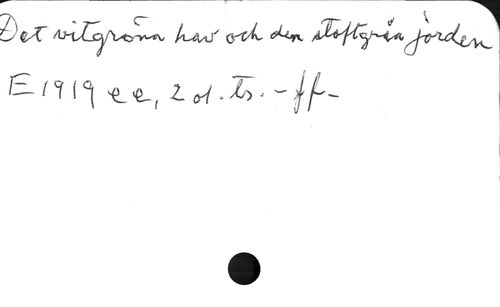 Det vitgröna hav och den stoftgråa jorden
E 1919 ee, 2 ol. ts. - ff -